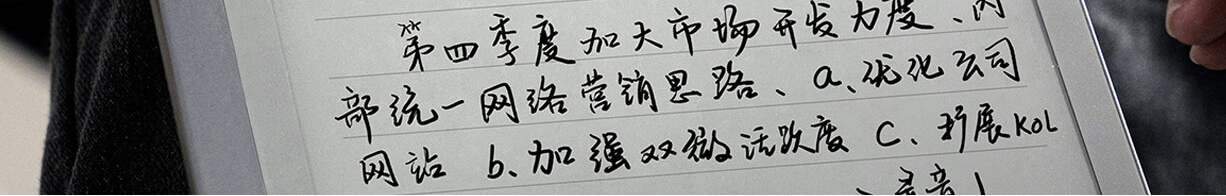 第四季度加大市场开发力度、内
部统一网络营销思路、a、优化公司
网站 b.加强双微活跃度 C、扩展KOL
录音